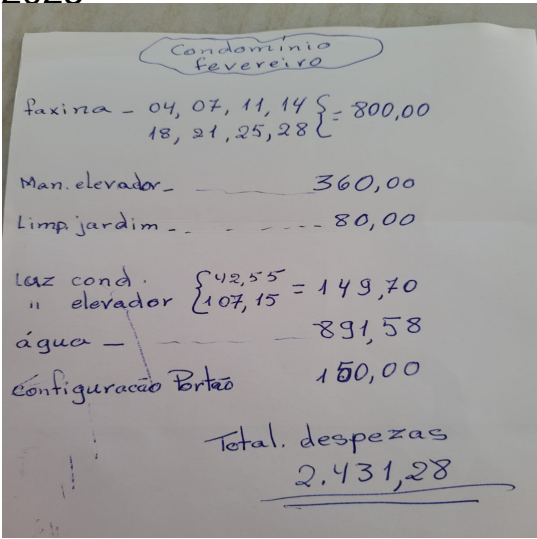 Condomínio
fevereiro
faxina - 04, 07, 11, 14 } = 800,00
18, 21, 25, 28
Man. elevador - 360,00
Limp. jardim - 80,00
luz cond. { 42,55 = 149,70
" elevador { 107,15
água - 891,58
Configuração Portão 150,00
Total. despezas
2.431,28